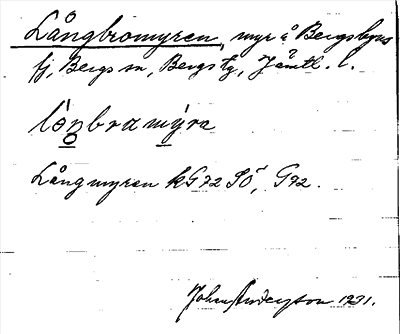 Långbromyren, myr å Bergsbyns
fj, Bergs sn, Bergs tg, Jämtl. l.
lò̱ŋbramýra
Långmyren kG72 SÖ, G72.
Johan Anderson 1931.